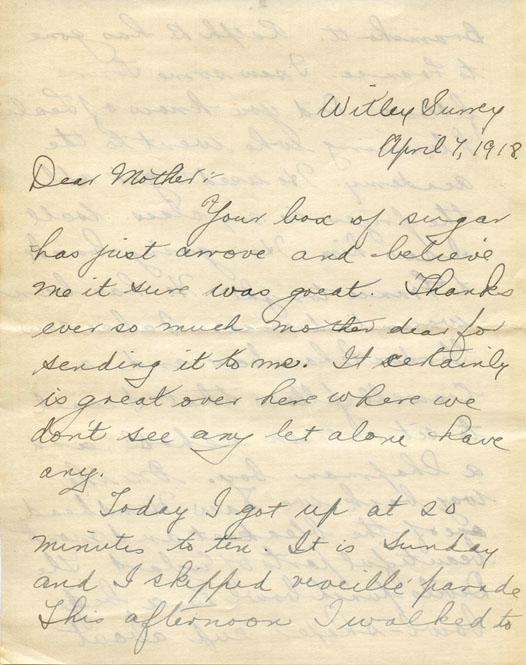 Witley Surrey
April 7, 1918.
Dear Mother:-
Your box of sugar
has just arrove and believe
me it sure was great. Thanks
ever so much mother dear for
sending it to me. It certainly
is great over here where we
don't see any let alone have
any.
Today I got up at 20
minutes to ten. It is Sunday
and I skipped reveillé parade
This afternoon I walked to